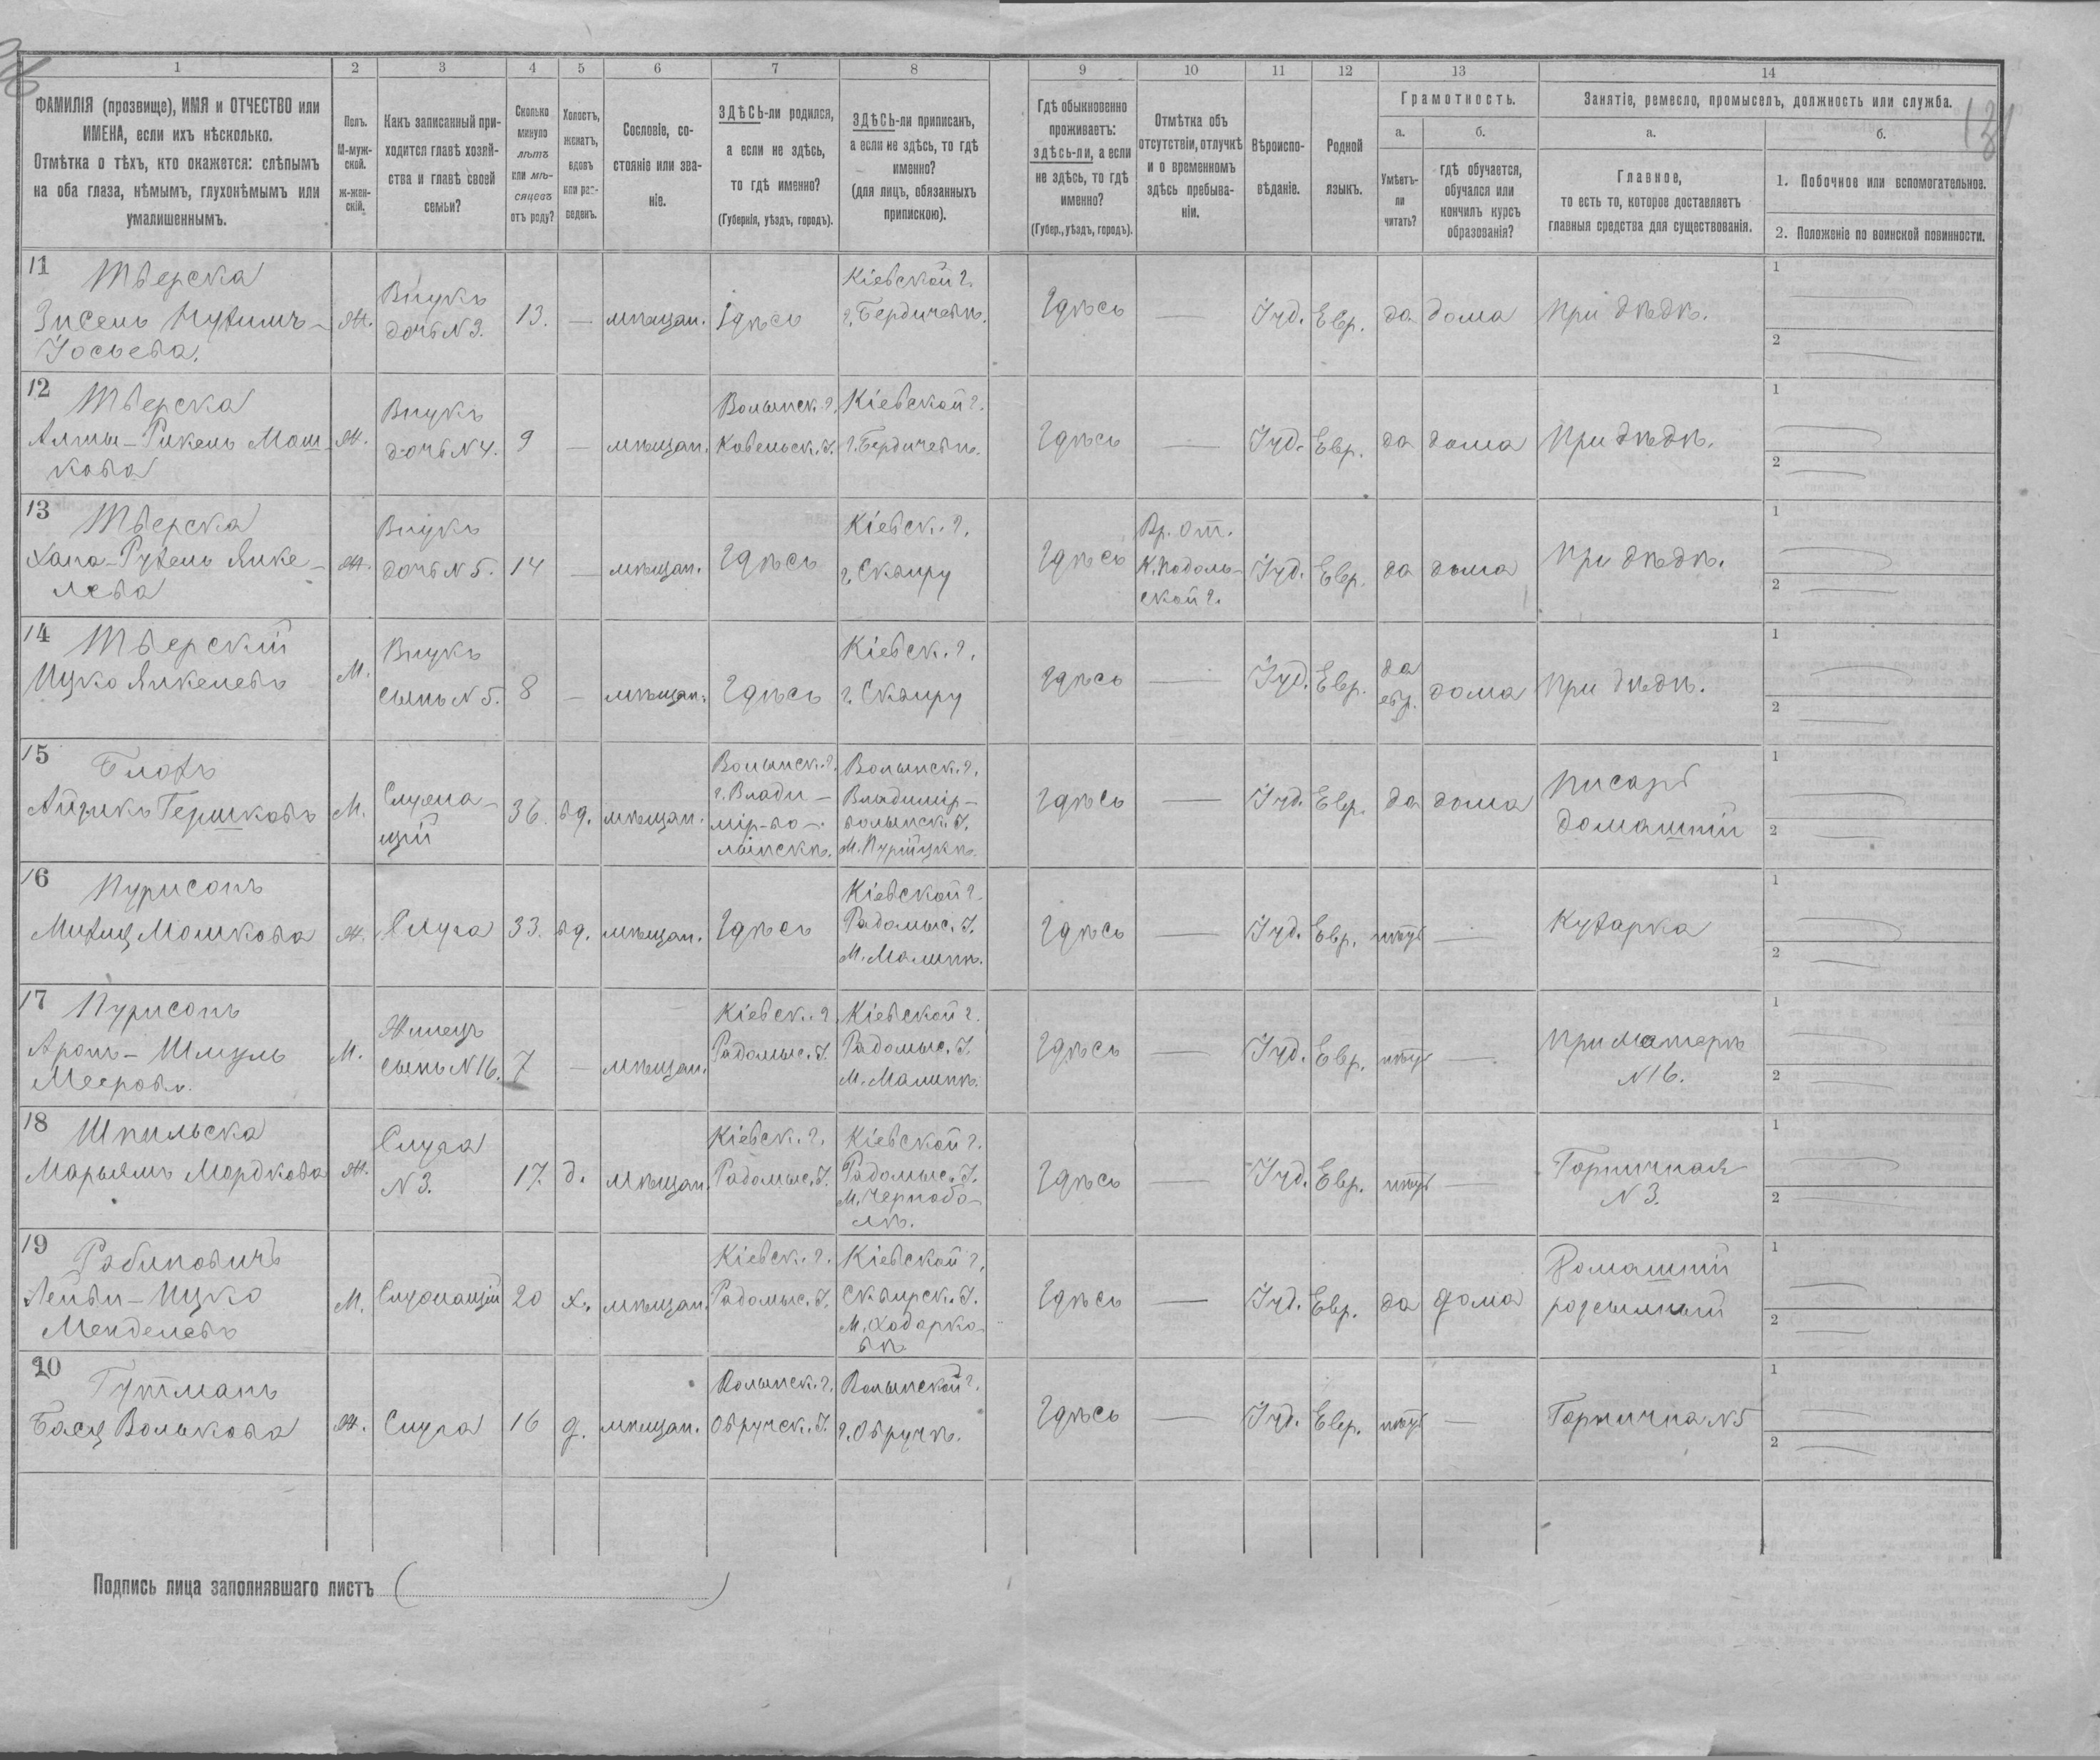 1 2 3 4 5 6 7 8 9 10 11 12 13 14
ФАМИЛІЯ (прозвище), ИМЯ и ОТЧЕСТВО или
ИМЕНА, если ихъ нѣсколько.
Отмѣтка о тѣхъ, кто окажется: слѣпымъ
на оба глаза, нѣмымъ, глухонѣмымъ или
умалишеннымъ.
Полъ.
М-муж-
ской.
Ж-жен-
скій.
Какъ записанный при-
ходится главѣ хозяй-
ства и главѣ своей
семьи?
Сколько
минуло
лѣтъ
или мѣ-
сяцевъ
отъ роду?
Холостъ,
женатъ,
вдовъ
или раз-
веденъ.
Сословіе, со-
стояніе или зва-
ніе.
ЗДѢСЬ-ли родился,
а если не здѣсь,
то гдѣ именно?
(Губернія, уѣздъ, городъ).
ЗДѢСЬ-ли приписанъ,
а если не здѣсь, то гдѣ
именно?
(для лицъ, обязанныхъ
припискою).
Гдѣ обыкновенно
проживаетъ:
здѣсь-ли, а если
не здѣсь, то гдѣ
именно?
(Губер., уѣздъ, городъ).
Отмѣтка объ
отсутствіи, отлучкѣ
и о временномъ
здѣсь пребыва-
ніи.
Вѣроиспо-
вѣданіе.
Родной
языкъ.
Грамотность.
а.
Умѣетъ-
ли
читать?
б.
гдѣ обучается,
обучался или
кончилъ курсъ
образованія?
Занятіе, ремесло, промыселъ, должность или служба.
а.
Главное,
то есть то, которое доставляетъ
главныя средства для существованія.
б.
1. Побочное или вспомогательное.
2. Положеніе по воинской повинности.
11 Тверска
Зисень Нухимъ-
Іосьева.
Ж.
Внукъ
дочь N 3.
13. — мѣщан. Здѣсь
Кіевской г.
г. Бердичевѣ.
Здѣсь — Іуд. Евр. да дома При дѣдѣ.
1
2
12 Тверска
Алты-Рикель Мош-
кова
Ж.
Внукъ
дочь N 4.
9 — мѣщан.
Волынск. г.
Ковельск. У.
Кіевской г.
г. Бердичевѣ.
Здѣсь — Іуд. Евр. да дома При дѣдѣ.
1
2
13 Тверска
Хана-Рухель Янке-
лева
Ж.
Внукъ
дочь N 5.
14 — мѣщан. Здѣсь
Кіевск. г.
г. Сквиру
Здѣсь
Вр. От.
К. Подоль-
ской г.
Іуд. Евр. да дома При дѣдѣ.
1
2
14 Тверскій
Ицко Янкелевъ
М.
Внукъ
сынъ N 5.
8 — мѣщан. Здѣсь
Кіевск. г.
г. Сквиру
Здѣсь — Іуд. Евр.
да
евр.
дома При дѣдѣ.
1
2
15 Блохъ
Айзикъ Гершковъ
М.
Служа-
щій
36. вд. мѣщан.
Волынск. г.
г. Влади-
мір-во-
лынскѣ.
Волынск. г.
Владимір-
волынск. У.
М. Порицкѣ.
Здѣсь — Іуд. Евр. да дома
Писарь
домашній
1
2
16 Пурисонъ
Михлц Мошкова
Ж. Слуга 33. вд. мѣщан. Здѣсь
Кіевской г.
Радомыс. У.
М. Малинѣ.
Здѣсь — Іуд. Евр. нѣтъ — Кухарка
1
2
17 Пурисонъ
Аронъ-Шмуль
Мееровъ.
М.
Жилецъ
сынъ N 16.
7 — мѣщан.
Кіевск. г.
Радомыс. У.
Кіевской г.
Радомыс. У.
М. Малинѣ.
Здѣсь — Іуд. Евр. нѣтъ —
При матерѣ
N 16.
1
2
18 Шпильска
Марьямъ Мордкова
Ж.
Слуга
N 3.
17. д. мѣщан.
Кіевск. г.
Радомыс. У.
Кіевской г.
Радомыс. У.
М. Чернобо-
лѣ.
Здѣсь — Іуд. Евр. нѣтъ —
Горничная
N 3.
1
2
19 Рабиновичъ
Лейви-Ицко
Менделевъ
М. Служащій 20 х. мѣщан.
Кіевск. г.
Радомыс. У.
Кіевской г.
Сквирск. У.
М. Ходорко-
вѣ
Здѣсь — Іуд. Евр. да дома
Домашній
розсыльный
1
2
20 Гутманъ
Басц Волькова
Ж. Слуга 16 д. мѣщан.
Волынск. г.
Овручск. У.
Волынской г.
г. Овручѣ.
Здѣсь — Іуд. Евр. нѣтъ — Горнична N 5
1
2
Подпись лица заполнявшаго листъ ( )